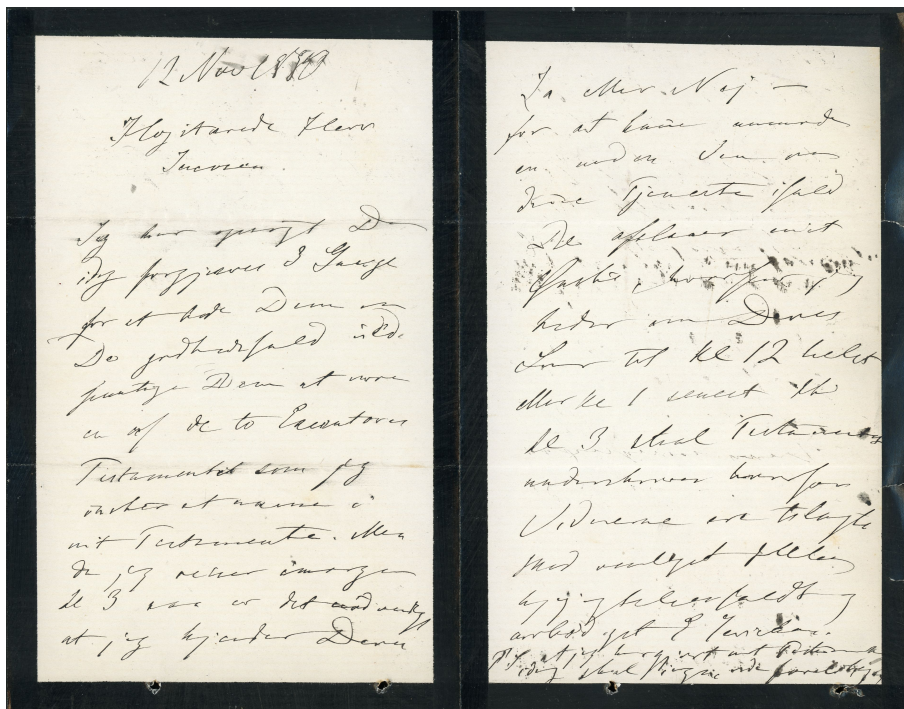 12 Nov 1890
Højstærede Herr
Iversen
Jeg har opsøgt Dem
idag forgjæves 3 Gange
for at bede Dem om
De godhedsfuld vilde
at være
en af de to Executores
Testamentet som jeg
ønsker at nævne i
mit Testamente. Men
da jeg reiser imorgen
kl 3 saa er det nødvendigt
at jeg kjender Deres
Ja eller Nej –
for at kunne anmode
en anden Ven om
denne Tjeneste ifald
De afslaaer mit
Ønske, hvorfor jeg
beder om Deres
Svar til kl 12 helst
eller kl 1 senest thi
kl 3 skal Testamentet
underskrives hvorfor
Vidnerne ere tilsagte
Med venligst Hilsen
og
arbødigst E Jerichau.
PS at jeg mit Testamente
idag skal